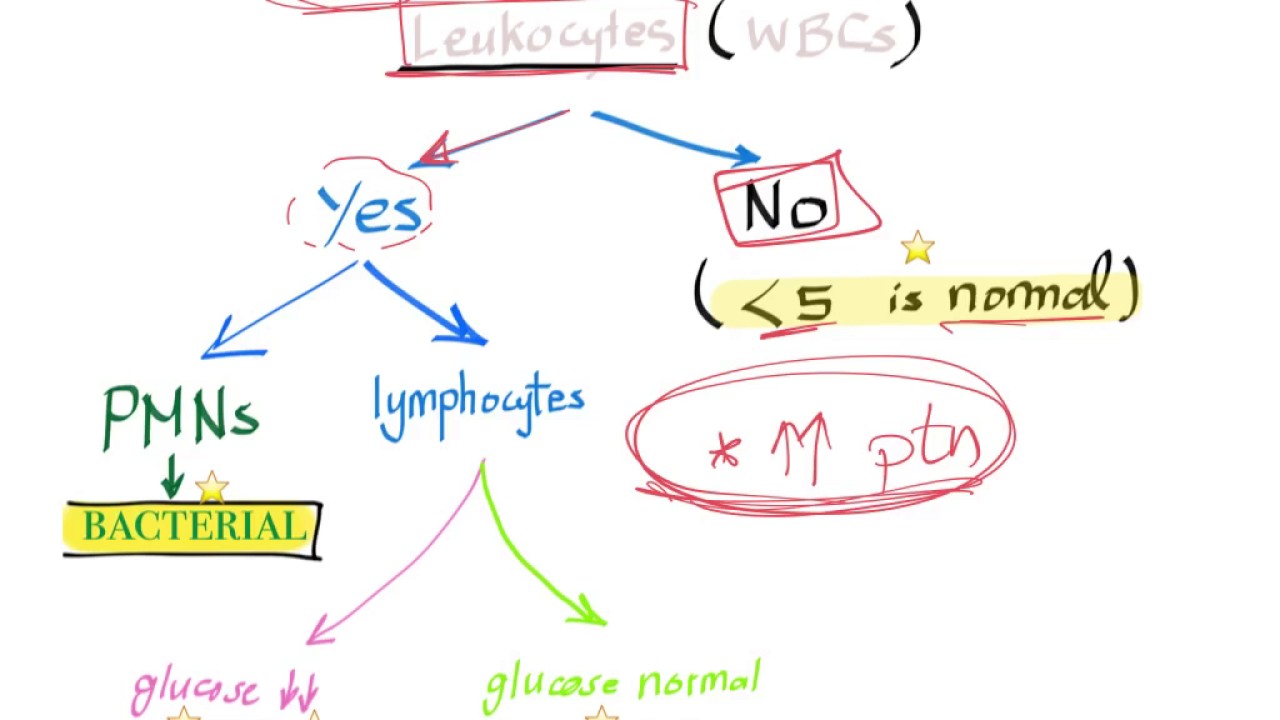 Leukocytes (WBCs)
Yes
No
(<5 is normal)
PMNs
lymphocytes
* ↑↑ ptn
↓
BACTERIAL
glucose ↓↓
glucose normal